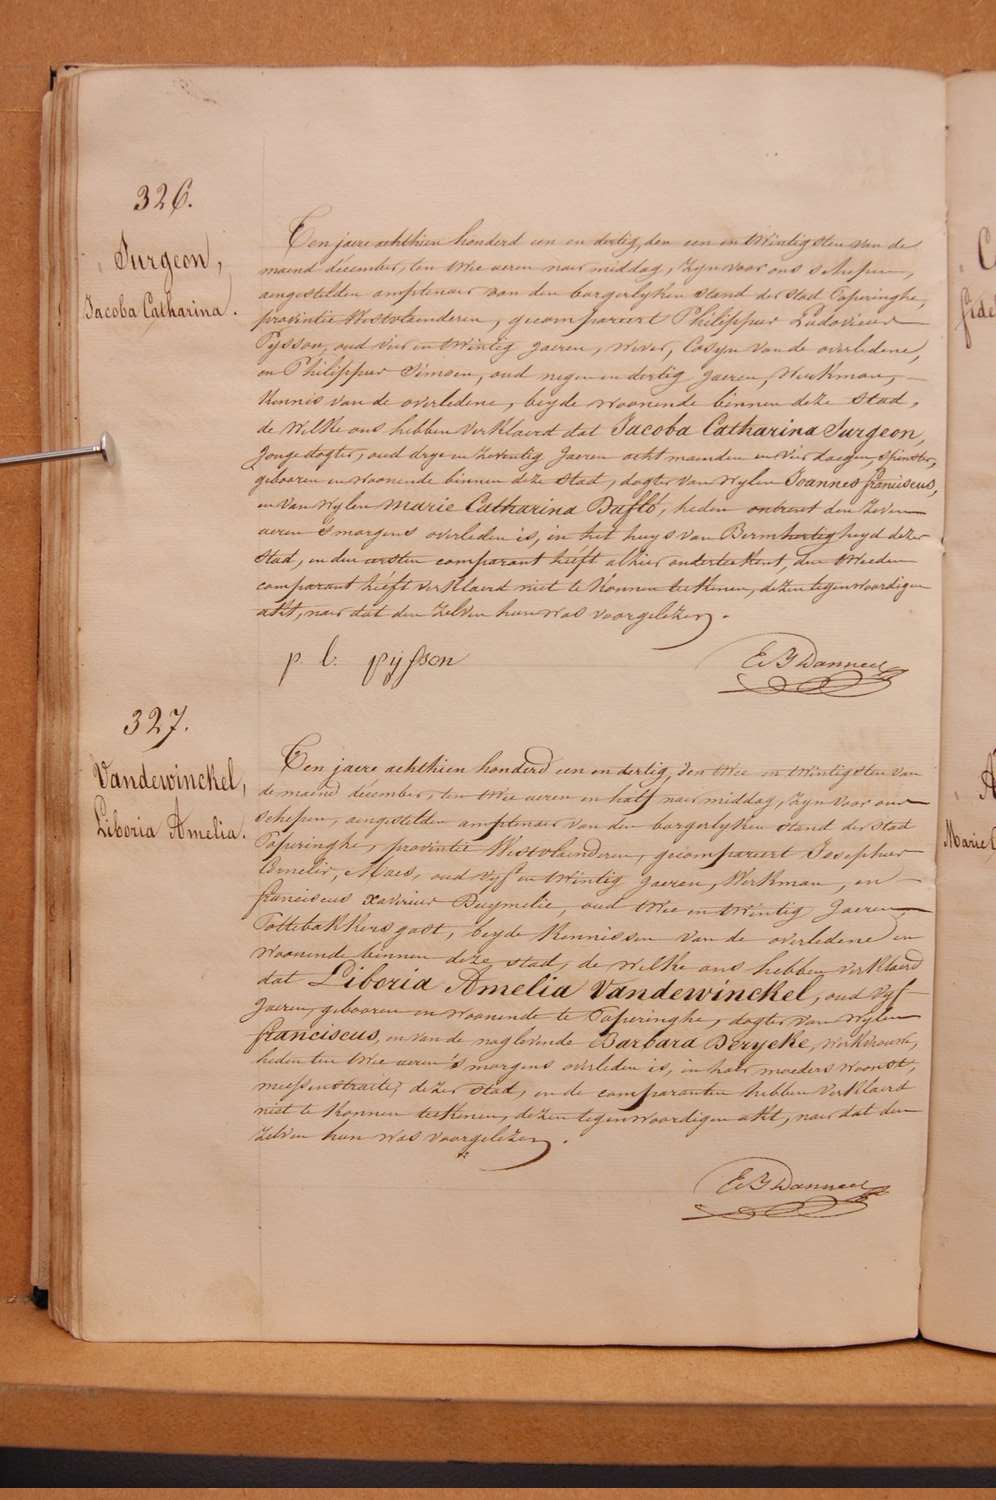 326.
Surgeon,
Jacoba Catharina.
Ten jaere achthien honderd een en dertig, den een en twintigsten van de
maend december, ten twee ueren naer middag, zyn voor ons schepen,
aengestelden amptenaer van den borgerlyken stand der stad Poperinghe,
provintie Westvlaenderen, gecompareert Philippus Ludovicus
Pysson, oud vier en twintig jaeren, wever, Cosyn van de overledene,
en Philippus Simoen, oud negen en dertig jaeren, Werkman,
Kennis van de overledene, beyde woonende binnen deze stad,
de welke ons hebben verklaerd dat Jacoba Catharina Surgeon,
Jonge dogter, oud drye en zeventig Jaeren acht maenden en vier daegen, spinster,
gebooren en woonende binnen deze stad, dogter van wylen Joannes franciscus,
en van wylen Marie Catharina Dafló, heden ontrent den zeven
ueren s'morgens overleden is, in het huys van Bermhertigheyd dezer
stad, en den eersten comparant heéft alhier onderteekent, den tweeden
comparant heéft verklaerd niet te konnen teekenen, dezen tegenwoordigen
akt, naer dat den zelven hun was voorgelezen.
p l: pijsson
E B Danneel
327.
Vandewinckel,
Liboria Amelia.
Ten jaere achthien honderd een en dertig, den twee en twintigsten van
de maend december, ten twee ueren en half naer middag, zyn voor ons
schepen, aengestelden amptenaer van den borgerlyken stand der stad
Poperinghe, provintie Westvlaenderen, gecompareert Josephus
Cornelis, Maes, oud vyf en twintig jaeren, Werkman, en
franciscus xaverius Duymelie, oud twee en twintig Jaeren,
Pottebakkers gast, beyde Kennissen van de overledene en
woonende binnen deze stad, de welke ons hebben verklaerd
dat Liboria Amelia Vandewinckel, oud vyf
Jaeren, gebooren en woonende te Poperinghe, dogter van wylen
franciscus, en van de naglevende Barbara Derycke, werkvrouw,
heden ten twee ueren s'morgens overleden is, in haer moeders woonst,
meessenstraete, dezer stad, en de comparanten hebben verklaerd
niet te konnen teekenen, dezen tegenwoordigen akt, naer dat den
zelven hun was voorgelezen.
E B Danneel
Marie